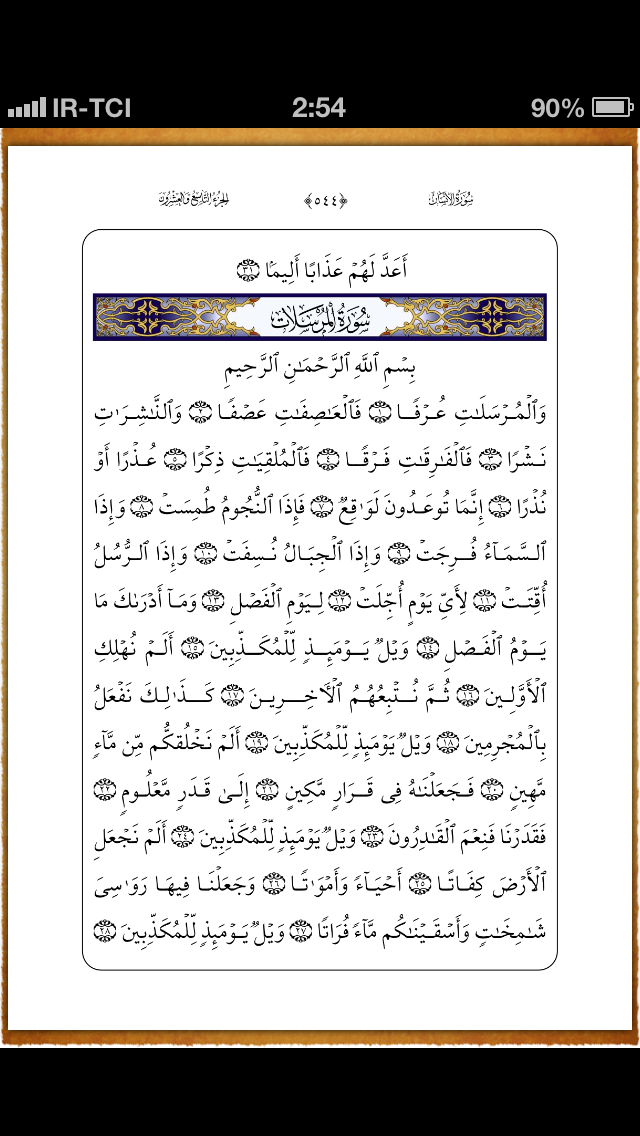 IR-TCI 2:54 90%
سُورَةُ الإِنسَان ﴿٥٤٤﴾ الجزء التَّاسِعُ وَالعِشْرُونَ
أَعَدَّ لَهُمْ عَذَابًا أَلِيمًا ٣١
سُورَةُ الْمُرْسَلَات
بِسْمِ ٱللَّهِ ٱلرَّحْمَـٰنِ ٱلرَّحِيمِ
وَٱلْمُرْسَلَـٰتِ عُرْفًا ١ فَٱلْعَـٰصِفَـٰتِ عَصْفًا ٢ وَٱلنَّـٰشِرَٰتِ
نَشْرًا ٣ فَٱلْفَـٰرِقَـٰتِ فَرْقًا ٤ فَٱلْمُلْقِيَـٰتِ ذِكْرًا ٥ عُذْرًا أَوْ
نُذْرًا ٦ إِنَّمَا تُوعَدُونَ لَوَٰقِعٌ ٧ فَإِذَا ٱلنُّجُومُ طُمِسَتْ ٨ وَإِذَا
ٱلسَّمَآءُ فُرِجَتْ ٩ وَإِذَا ٱلْجِبَالُ نُسِفَتْ ١٠ وَإِذَا ٱلرُّسُلُ
أُقِّتَتْ ١١ لِأَىِّ يَوْمٍ أُجِّلَتْ ١٢ لِيَوْمِ ٱلْفَصْلِ ١٣ وَمَآ أَدْرَىٰكَ مَا
يَوْمُ ٱلْفَصْلِ ١٤ وَيْلٌ يَوْمَئِذٍ لِّلْمُكَذِّبِينَ ١٥ أَلَمْ نُهْلِكِ
ٱلْأَوَّلِينَ ١٦ ثُمَّ نُتْبِعُهُمُ ٱلْـَٔاخِرِينَ ١٧ كَذَٰلِكَ نَفْعَلُ
بِٱلْمُجْرِمِينَ ١٨ وَيْلٌ يَوْمَئِذٍ لِّلْمُكَذِّبِينَ ١٩ أَلَمْ نَخْلُقكُّم مِّن مَّآءٍ
مَّهِينٍ ٢٠ فَجَعَلْنَـٰهُ فِى قَرَارٍ مَّكِينٍ ٢١ إِلَىٰ قَدَرٍ مَّعْلُومٍ ٢٢
فَقَدَرْنَا فَنِعْمَ ٱلْقَـٰدِرُونَ ٢٣ وَيْلٌ يَوْمَئِذٍ لِّلْمُكَذِّبِينَ ٢٤ أَلَمْ نَجْعَلِ
ٱلْأَرْضَ كِفَاتًا ٢٥ أَحْيَآءً وَأَمْوَٰتًا ٢٦ وَجَعَلْنَا فِيهَا رَوَٰسِىَ
شَـٰمِخَـٰتٍ وَأَسْقَيْنَـٰكُم مَّآءً فُرَاتًا ٢٧ وَيْلٌ يَوْمَئِذٍ لِّلْمُكَذِّبِينَ ٢٨